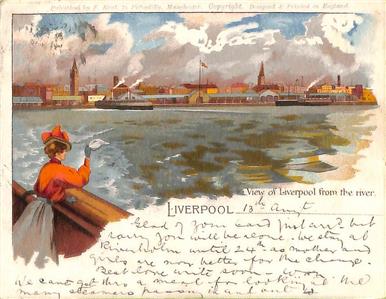 Published by F. Hunt, Piccadilly, Manchester. Copyright. Designed & Printed in England.
View of Liverpool from the river.
LIVERPOOL 13th Augt
Glad of your card just arrd but
sorry you will be alone. We stay at
until 24th as mother and
girls are now better for the change.
Best love write soon
We cant get thro a meal for looking at the
many steamers passing in and out